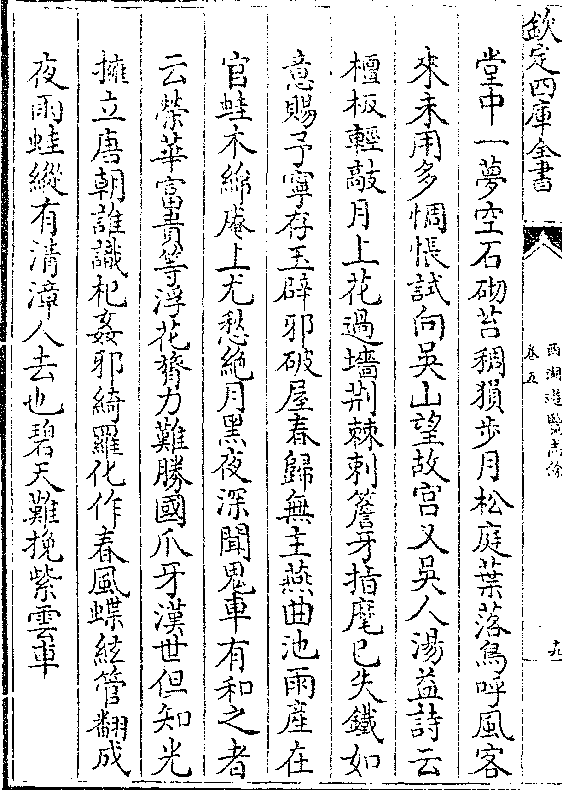 欽定四庫全書
西湖遊覽志餘
卷五
九
堂中一夢空石砌苔稠猿步月松庭葉落鳥呼風客
來未用多惆悵試向吳山望故宮又吳人湯益詩云
檀板輕敲月上花過墻荆棘刺簷牙指麾已失鐵如
意賜予寧存玉辟邪破屋春歸無主燕曲池雨產在
官蛙木綿庵上尤愁絶月黑夜深聞鬼車有和之者
云榮華富貴等浮花膂力難勝國爪牙漢世但知光
擁立唐朝誰識杞姦邪綺羅化作春風蝶絃管翻成
夜雨蛙縱有清漳人去也碧天難挽紫雲車